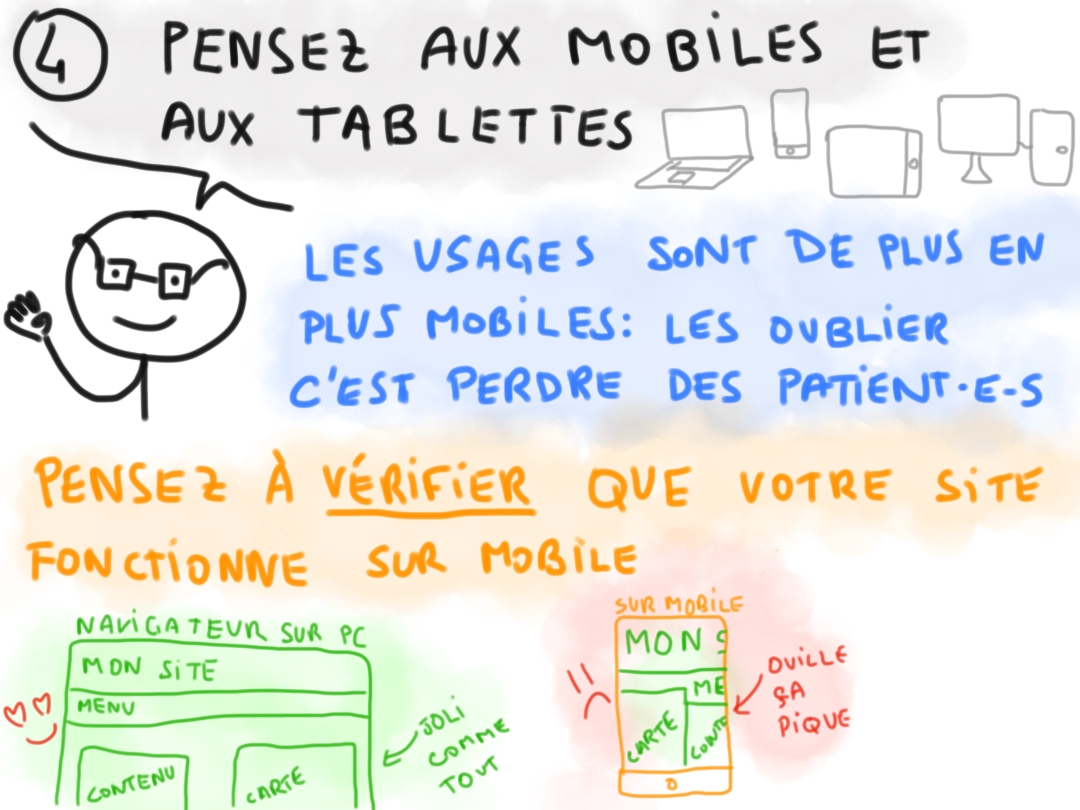 4 PENSEZ AUX MOBILES ET
AUX TABLETTES
LES USAGES SONT DE PLUS EN
PLUS MOBILES: LES OUBLIER
C'EST PERDRE DES PATIENT·E-S
PENSEZ À VÉRIFIER QUE VOTRE SITE
FONCTIONNE SUR MOBILE
NAVIGATEUR SUR PC
MON SITE
MENU
CONTENU
CARTE
JOLI
COMME
TOUT
SUR MOBILE
MON S
ME
CARTE
CONTE
OUILLE
ÇA
PIQUE